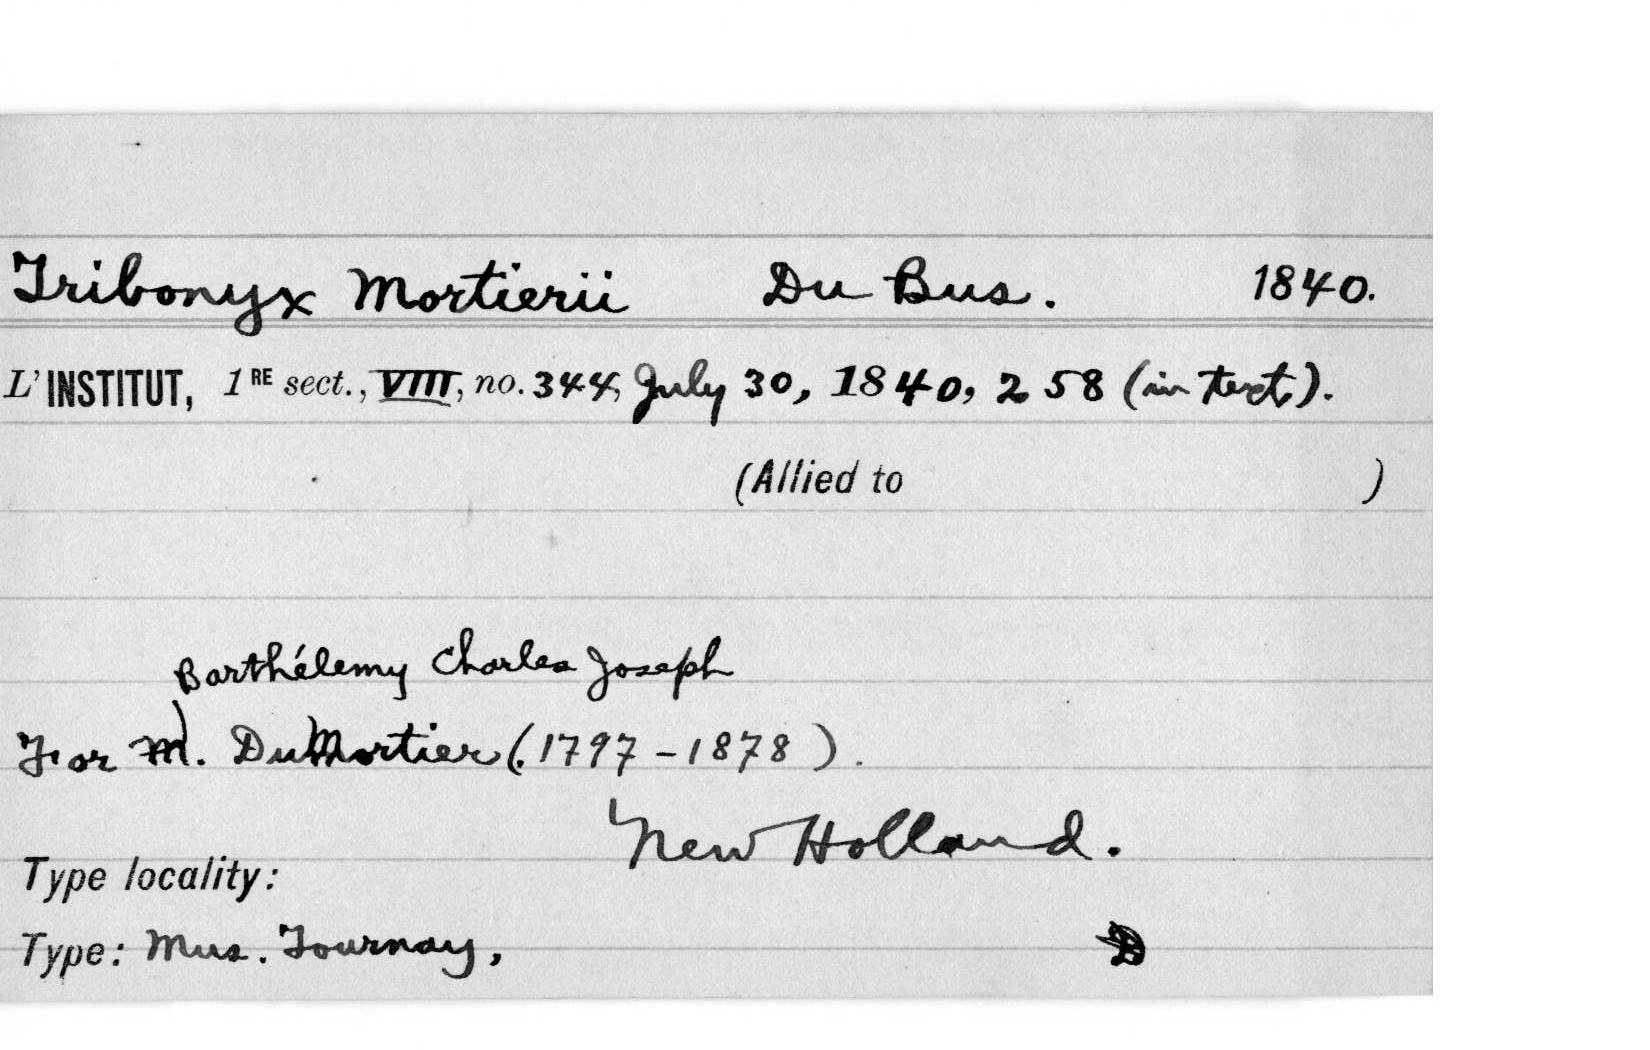 Tribonyx Mortierii Du Bus. 1840.
L' INSTITUT, 1RE sect., VIII, no. 344, July 30, 1840, 258 (in text).
(Allied to )
Barthélemy Charles Joseph
For M. DuMortier (1797-1878).
New Holland.
Type locality:
Type: Mus. Tournay,